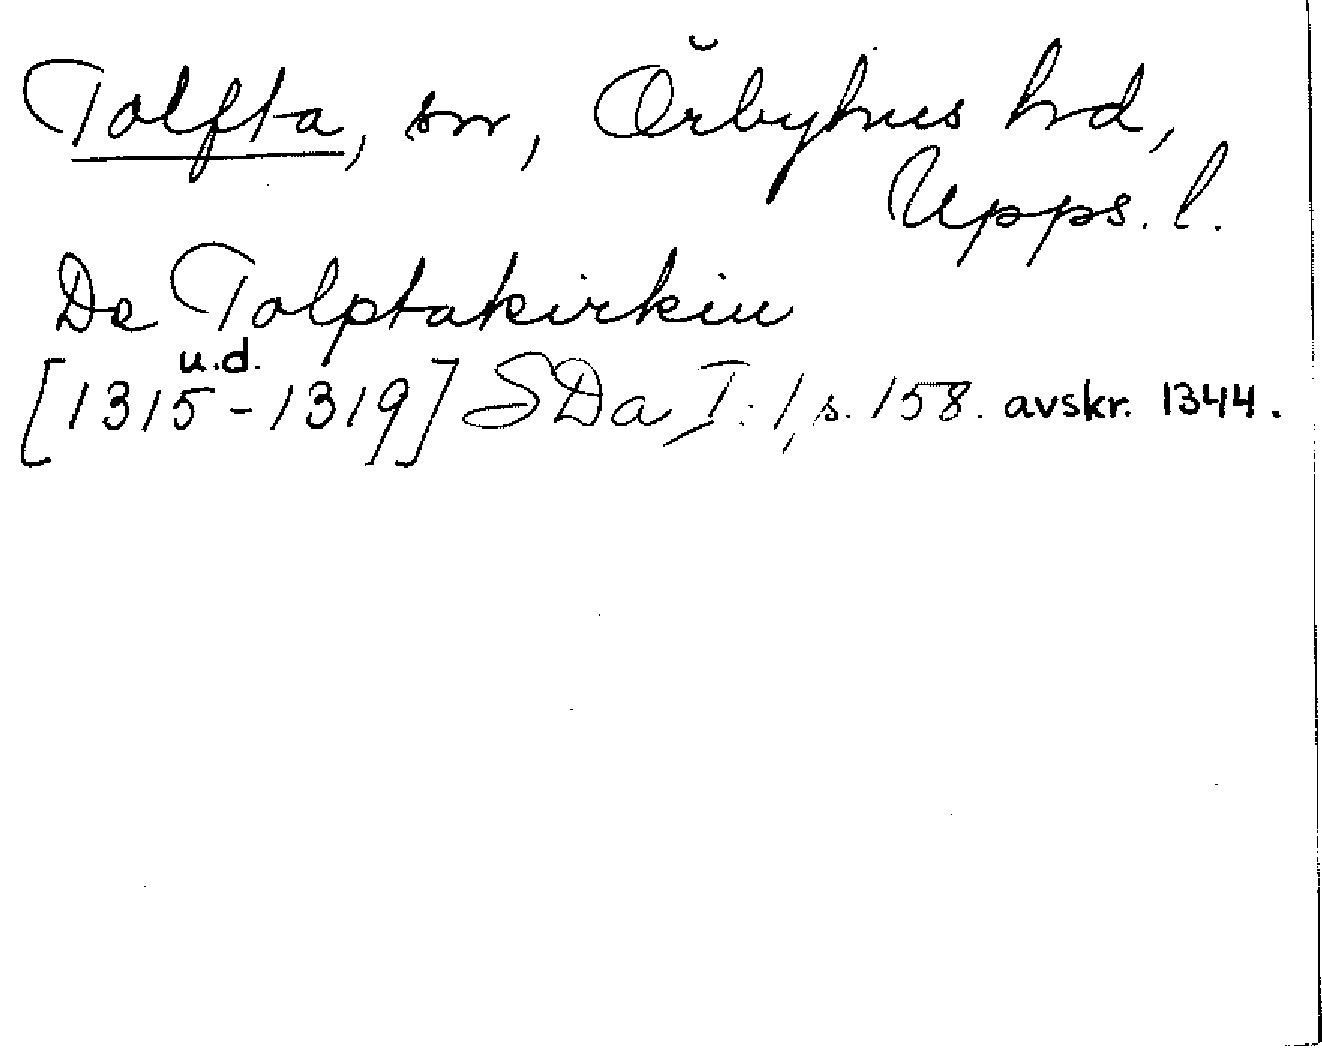 Tolfta, sn, Örbyhus hd,
Upps. l.
De Tolptakirkiu
u.d.
[1315-1319] SDa I:1, s. 158. avskr. 1344.